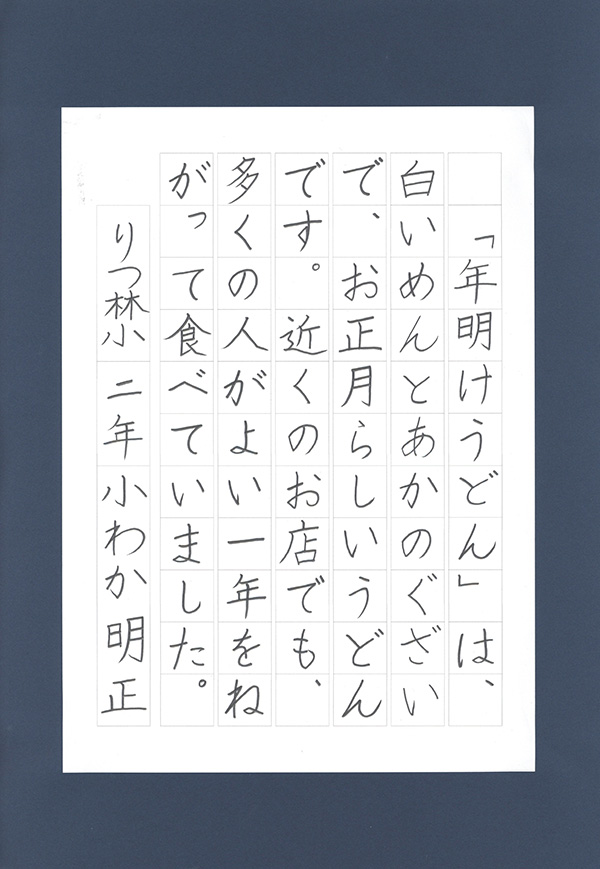 「年明けうどん」は、
白いめんとあかのぐざい
で、お正月らしいうどん
です。近くのお店でも、
多くの人がよい一年をね
がって食べていました。
りつ林小 二年 小わか 明正